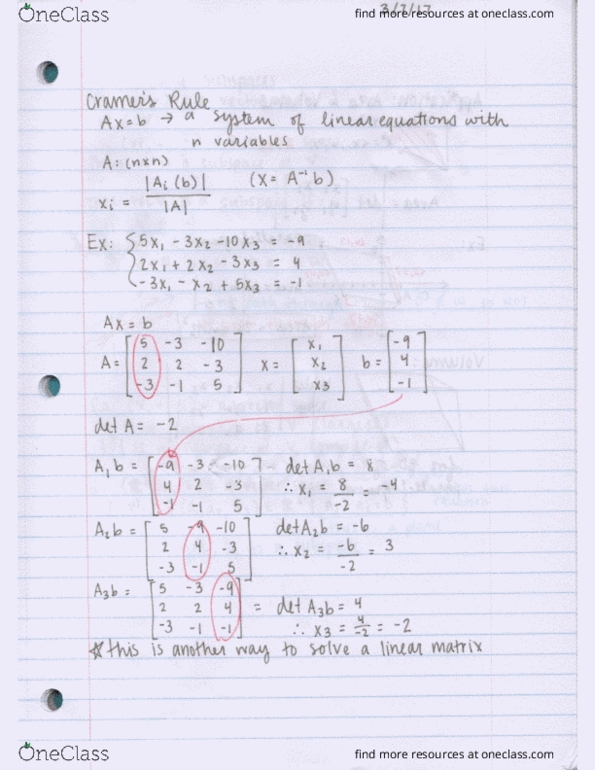 OneClass
find more resources at oneclass.com
3/7/17
Cramer's Rule
Ax=b → a system of linear equations with
n variables
A: (n×n)
xi = |Ai(b)| / |A| (x = A⁻¹b)
Ex: { 5x₁ - 3x₂ - 10x₃ = -9
2x₁ + 2x₂ - 3x₃ = 4
-3x₁ - x₂ + 5x₃ = -1
Ax=b
A = [5 -3 -10 x = [x₁ b = [-9
2 2 -3 x₂ 4
-3 -1 5] x₃] -1]
det A = -2
A₁b = [-9 -3 -10 det A₁b = 8
4 2 -3 ∴ x₁ = 8/-2 = -4
-1 -1 5]
A₂b = [5 -9 -10 det A₂b = -6
2 4 -3 ∴ x₂ = -6/-2 = 3
-3 -1 5]
A₃b = [5 -3 -9
2 2 4 = det A₃b = 4
-3 -1 -1] ∴ x₃ = 4/-2 = -2
*this is another way to solve a linear matrix
OneClass
find more resources at oneclass.com